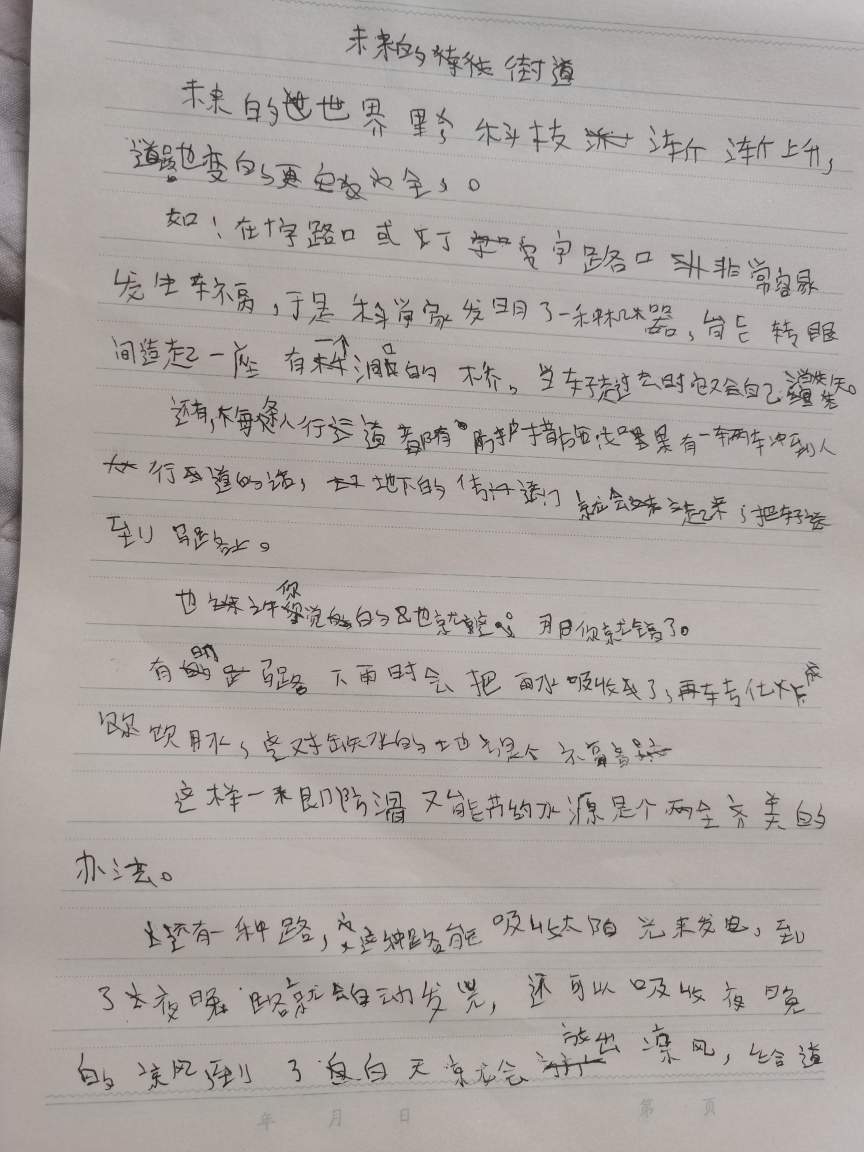 未来的街道
未来的世界 科技渐渐上升，
道路也变的更安全，。
如：在十字路口或丁字路口非常容易
发生车祸，于是科学家发明了一种机器，能转眼
间造起一座有洞的桥。当车子走过去时它又会自己消失。
还有，每条人行道都有防护措施如果有一辆车冲到人
行道的话，地下的传送门就会起来，把车子送
到马路上。
也许你觉的也就这。那你就错了。
有的马路下雨时会把雨水吸收了，再转化成
饮用水，对缺水的地
这样一来即防滑又能节约水源是个两全齐美的
办法。
还有一种路，这种路能吸收太阳光来发电，到
了夜晚路就会自动发光，还可以吸收夜晚
的凉风，到了白天就会放出凉风，给道
年 月 日 第 页